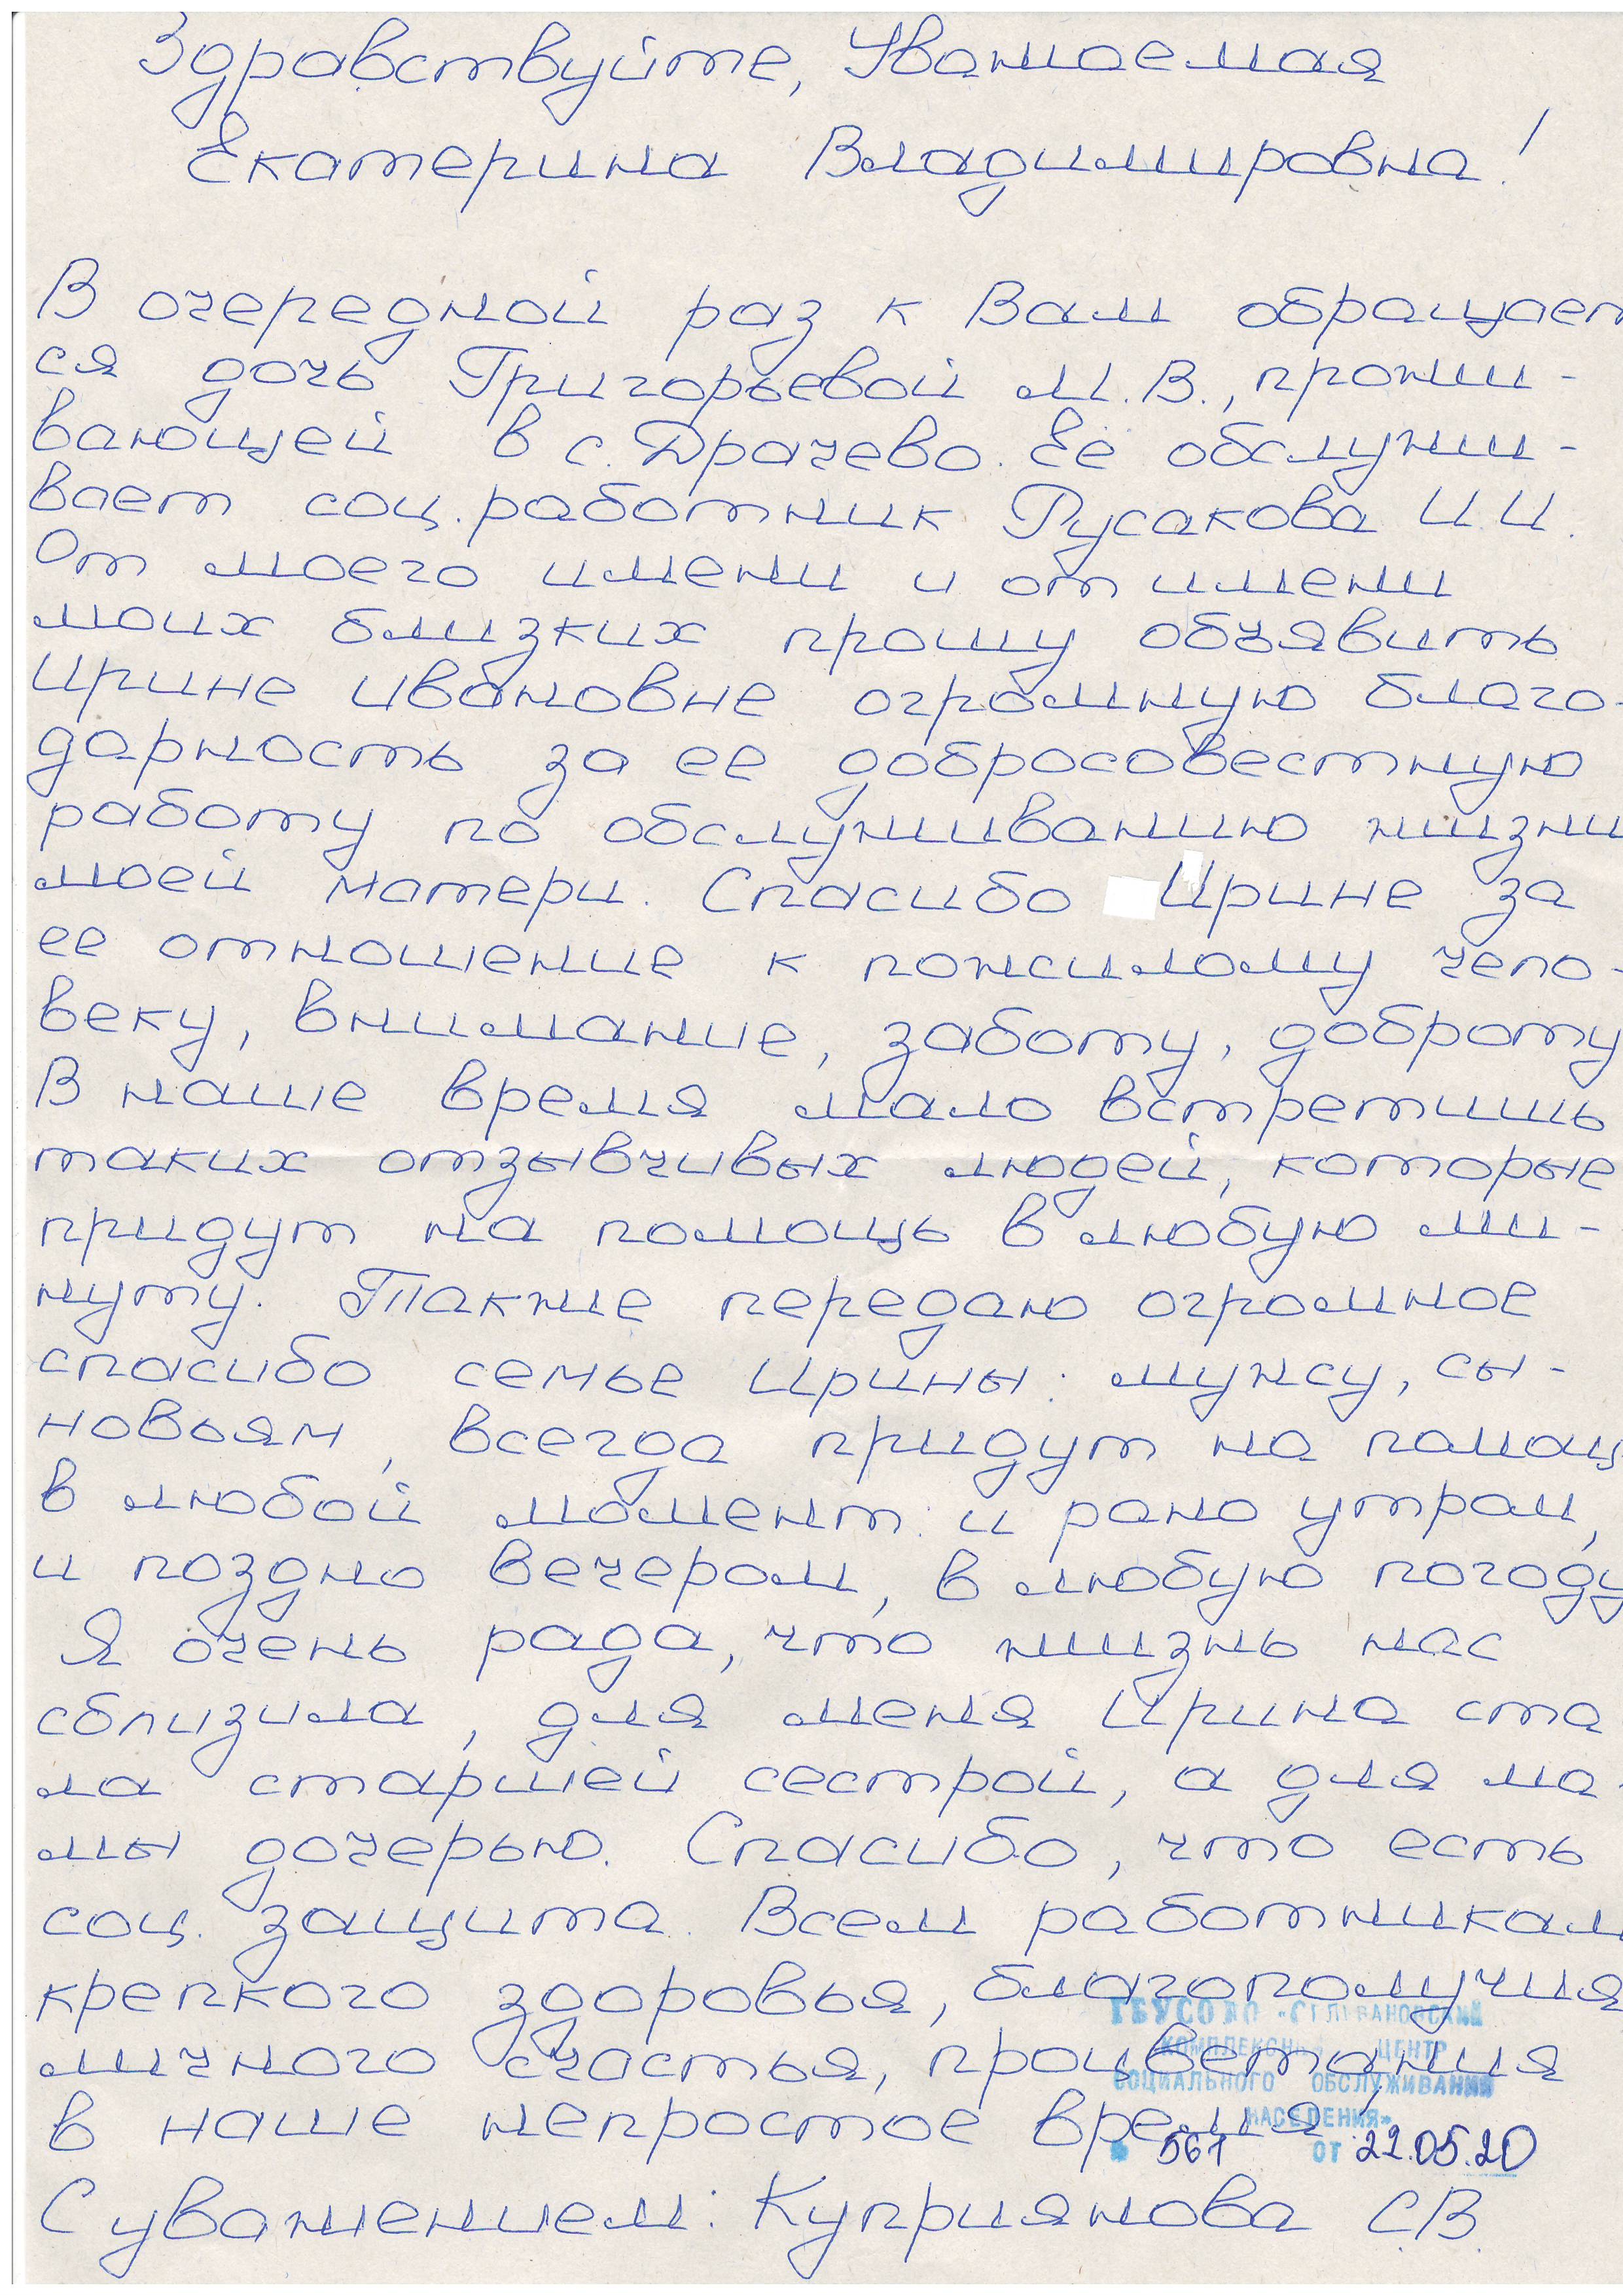 Здравствуйте, Уважаемая
Екатерина Владимировна!
В очередной раз к Вам обращает
ся дочь Григорьевой М.В., прожи-
вающей в с. Драчево. Её обслужи-
вает соц. работник Русакова И.И.
От моего имени и от имени
моих близких прошу объявить
Ирине Ивановне огромную благо-
дарность за ее добросовестную
работу по обслуживанию жизни
моей матери. Спасибо Ирине за
ее отношение к пожилому чело-
веку, внимание, заботу, доброту
В наше время мало встретишь
таких отзывчивых людей, которые
придут на помощь в любую ми-
нуту. Также передаю огромное
спасибо семье Ирины: мужу, сы-
новьям, всегда придут на помощ
в любой момент: и рано утром,
и поздно вечером, в любую погоду
Я очень рада, что жизнь нас
сблизила, для меня Ирина ста
ла старшей сестрой, а для ма-
мы дочерью. Спасибо, что есть
соц. защита. Всем работникам
крепкого здоровья, благополучия
личного счастья, процветания
в наше непростое время!
ГБУСО ВО «СЕЛИВАНОВСКИЙ
КОМПЛЕКСНЫЙ ЦЕНТР
СОЦИАЛЬНОГО ОБСЛУЖИВАНИЯ
НАСЕЛЕНИЯ»
561 от 22.05.20
С уважением: Куприянова С.В.